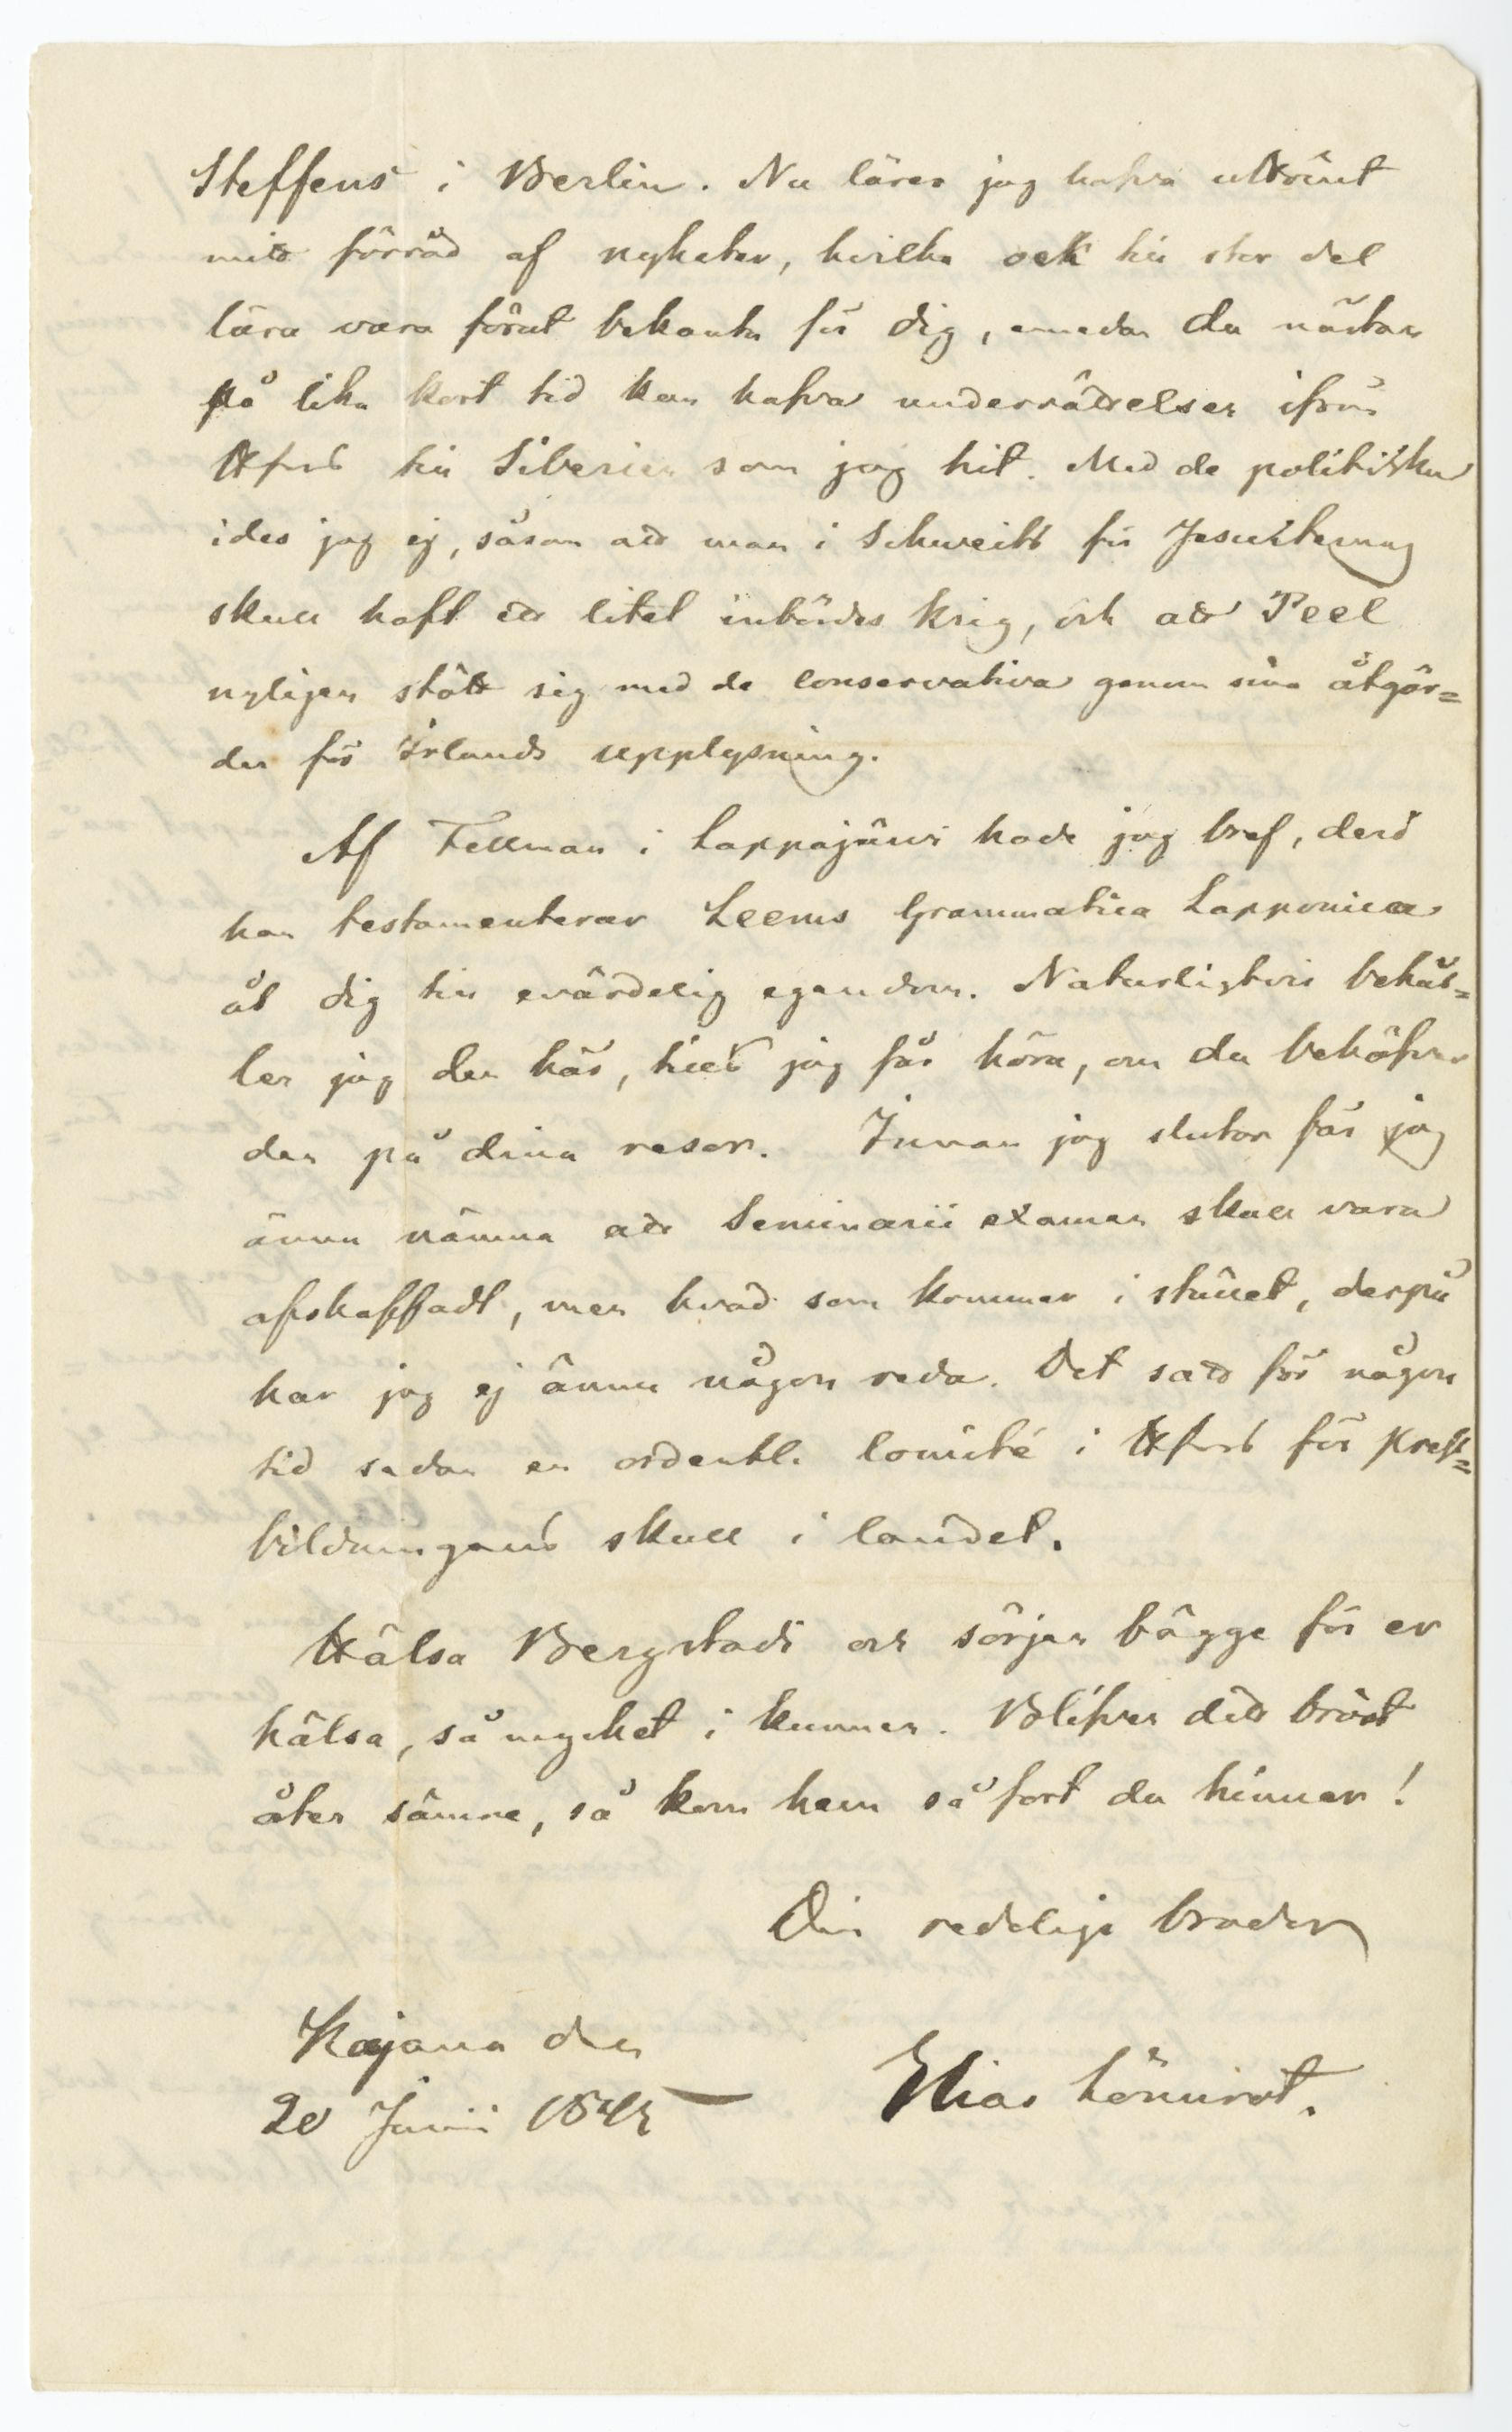 Steffens i Berlin. Nu lärer jag hafva uttömt
mitt förråd af nyheter, hvilka ock till stor del
lära vara förut bekanta för dig, emedan du nästan
på lika kort tid kan hafva underrättelser ifrån
H:fors till Siberien som jag hit. Med de politiska
ides jag ej, såsom att man i Schweitz för Jesuiterna
skall haft ett litet inbördes krig, och att Peel
nyligen stött sig med de conservativa genom sina åtgär=
der för Irlands upplysning.
Af Fellman i Lappajärvi hade jag bref, deri
han testamenterar Leems Grammatica Lapponica
åt dig till evärdelig egendom. Naturligtvis behål=
ler jag den här, tills jag får höra, om du behöfver
den på dina resor. Innan jag slutar får jag
ännu nämna att Seminarii examen skall vara
afskaffadt, men hvad som kommer i stället, derpå
har jag ej ännu någon reda. Det satt för någon
tid sedan en ordentl. Comité i H:fors för prest=
bildningens skull i landet.
Hälsa Bergstadi och sörjen bägge för er
hälsa, så mycket i kunnen. Blifver ditt bröst
åter sämre, så kom hem så fort du hinner!
Din redelige broder
Kajana den
20 Junii 1845
Elias Lönnrot.